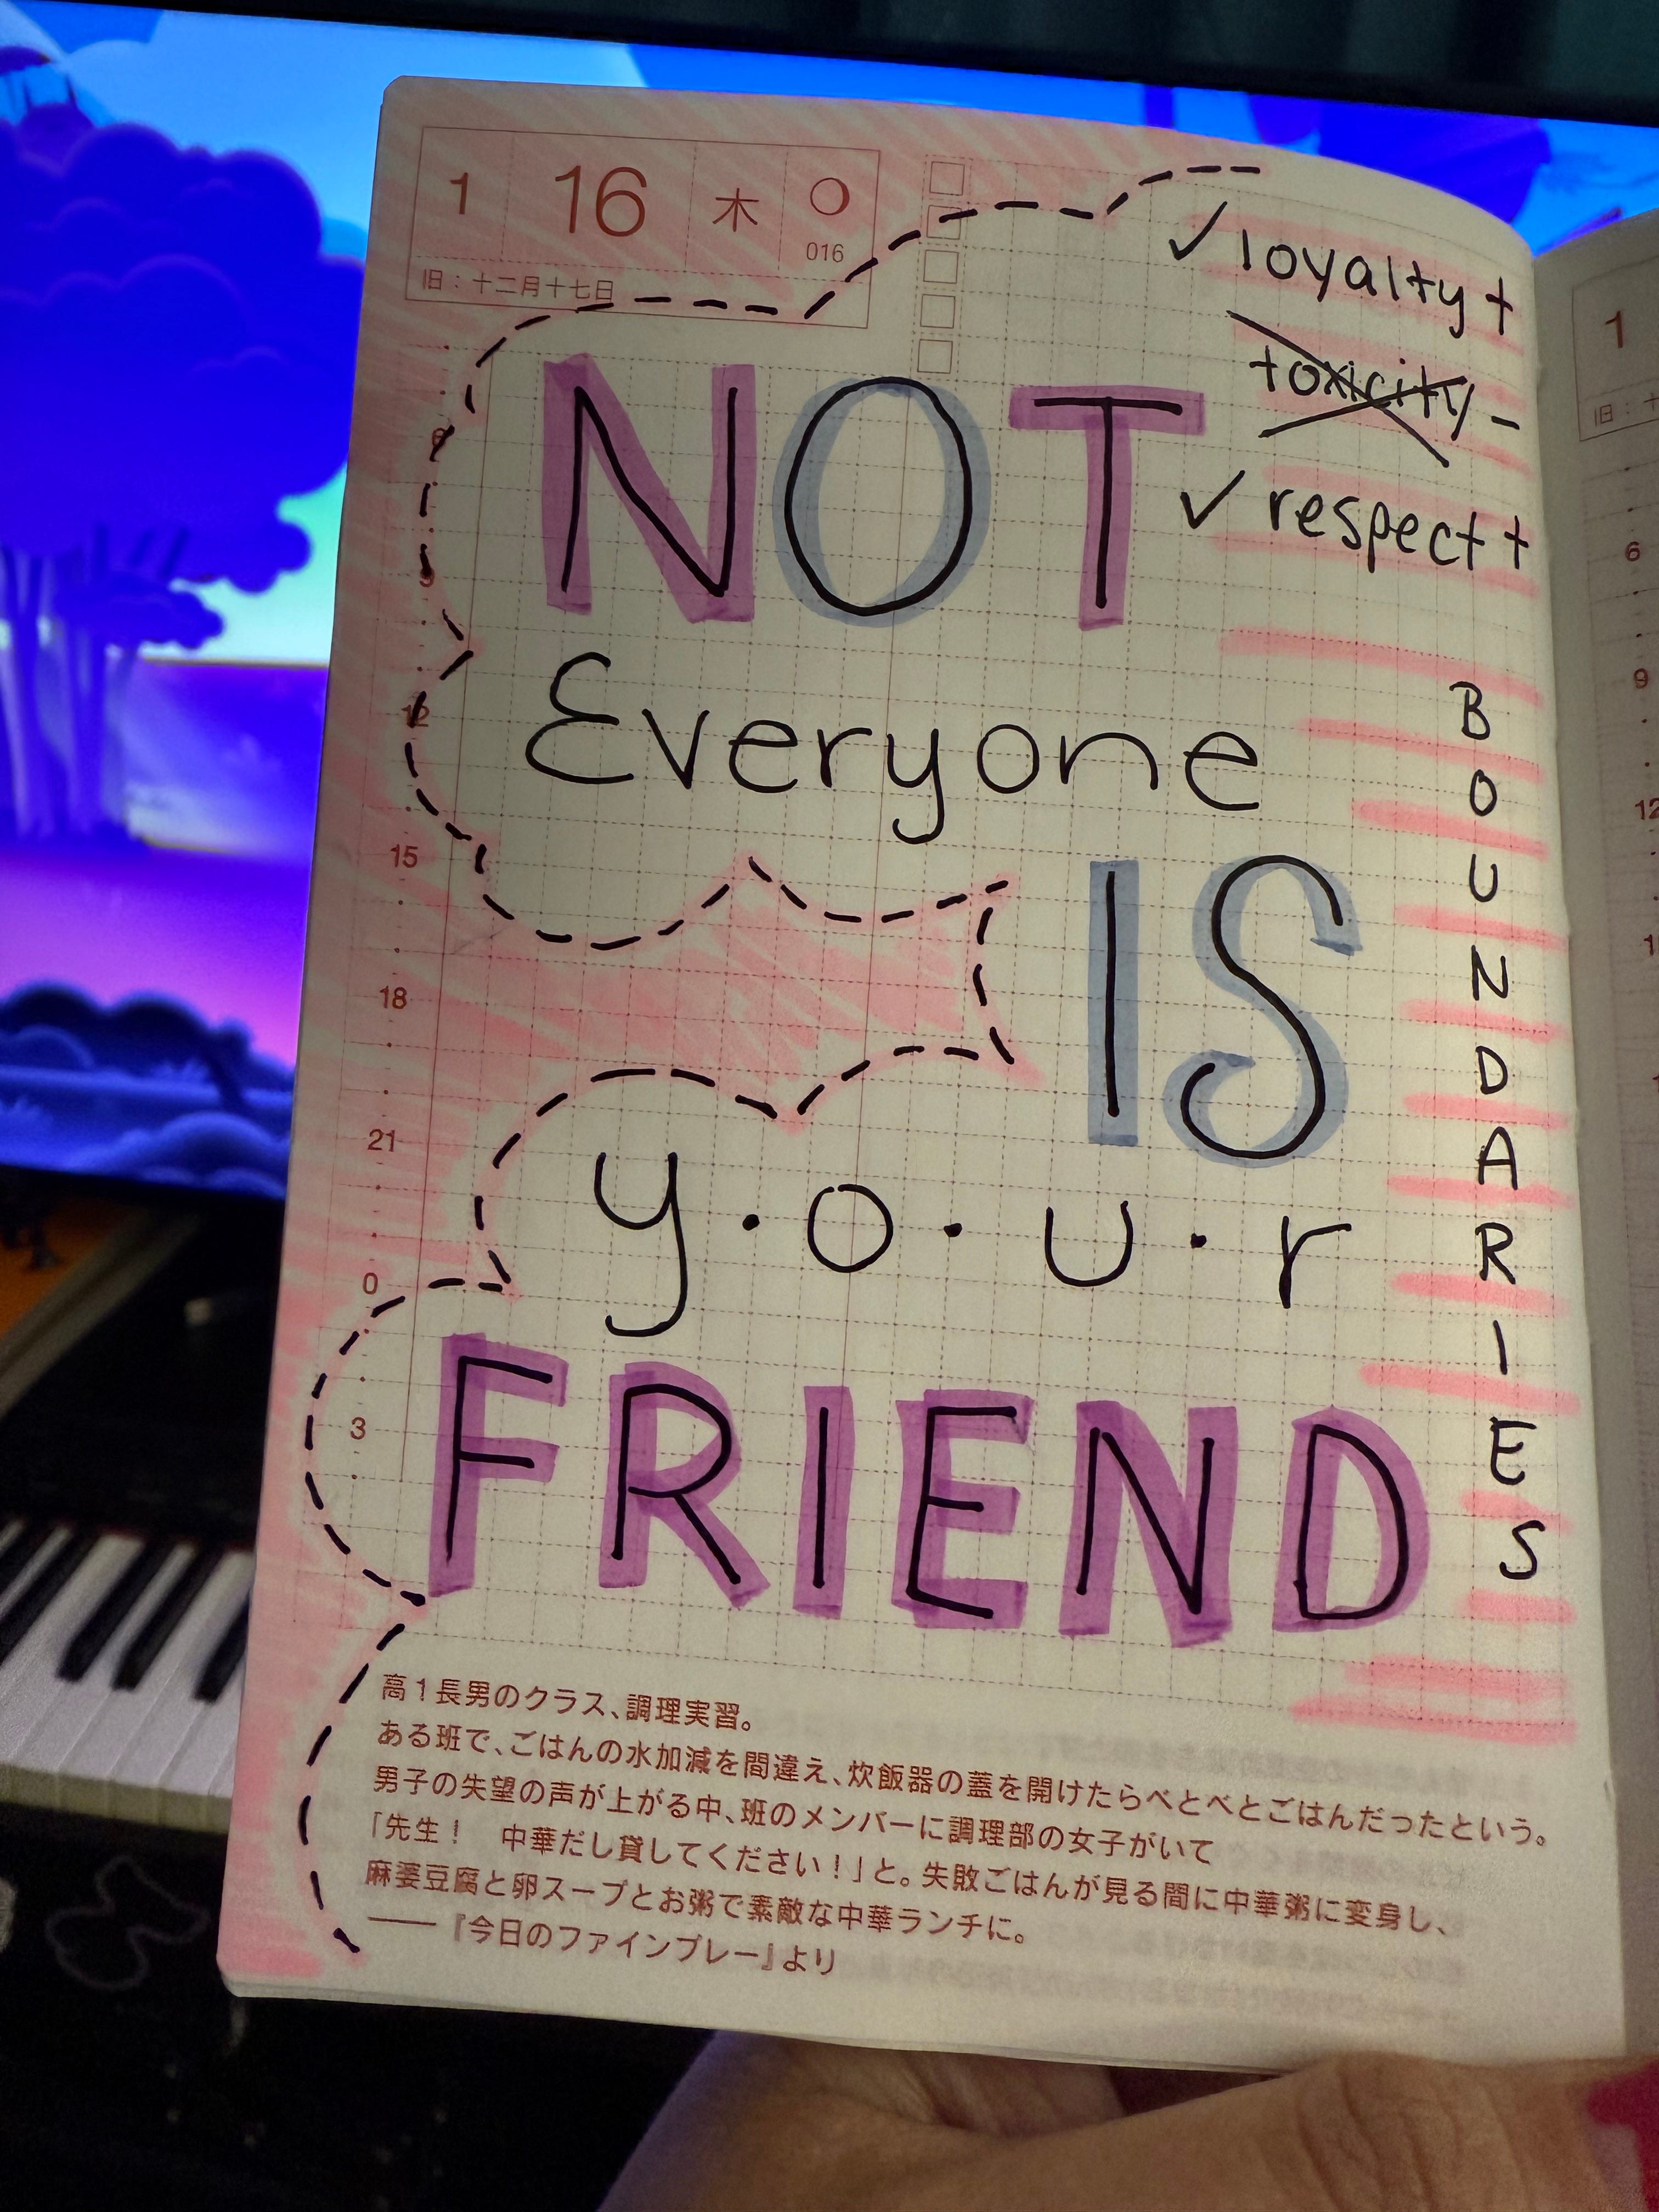 1 16 木
016
旧：十二月十七日
✓ loyalty +
toxicity -
✓ respect +
NOT
Everyone
IS
y·o·u·r
FRIEND
BOUNDARIES
6
9
12
15
18
21
0
3
高1長男のクラス、調理実習。
ある班で、ごはんの水加減を間違え、炊飯器の蓋を開けたらべとべとごはんだったという。
男子の失望の声が上がる中、班のメンバーに調理部の女子がいて
「先生！　中華だし貸してください！」と。失敗ごはんが見る間に中華粥に変身し、
麻婆豆腐と卵スープとお粥で素敵な中華ランチに。
——『今日のファインプレー』より
1
旧：十
6
9
12